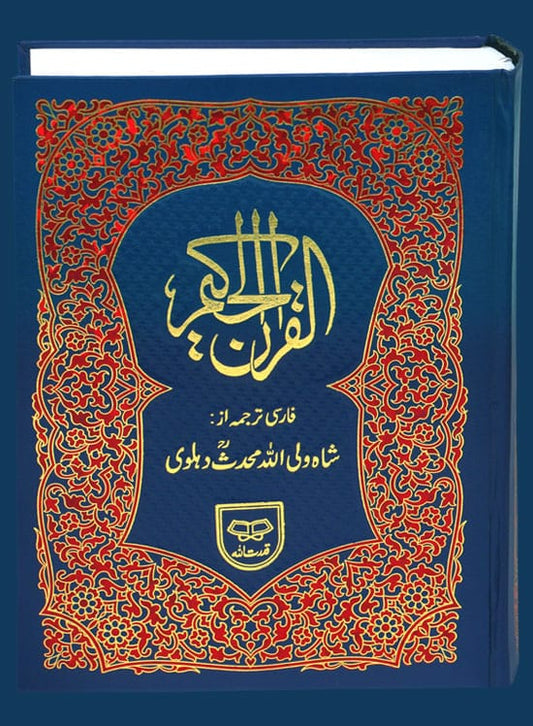 القرآن الحكيم
فارسی ترجمہ از:
شاہ ولی اللہ محدث دہلویؒ
قدرت اللہ